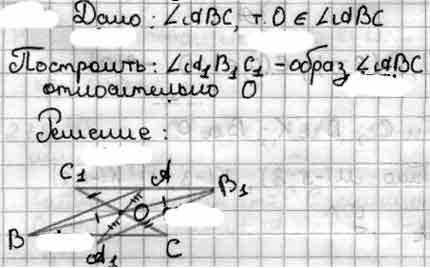 Дано: ∠ABC, т. O ∈ ∠ABC
Построить: ∠A₁B₁C₁ - образ ∠ABC
относительно O
Решение:
C₁ A B₁
O
B A₁ C